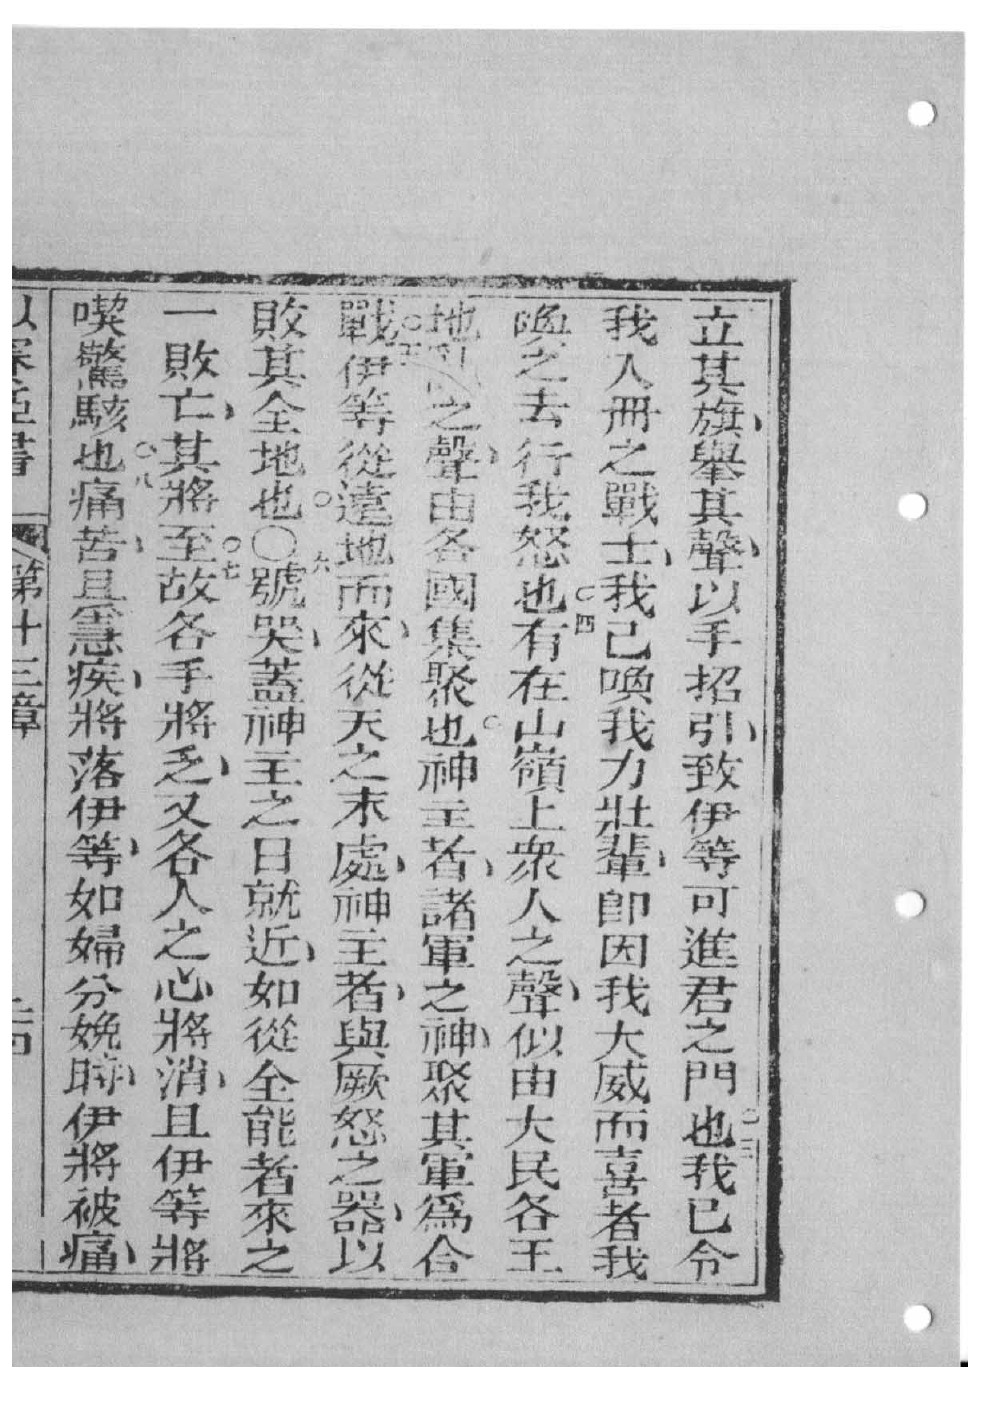 立其旗、舉其聲、以手招引、致伊等可進君之門也○三我已令
我入冊之戰士、我已喚我力壯輩、即因我大威而喜者我
喚之去行我怒也○四有在山嶺上衆人之聲、似由大民各王
地之聲、由各國集聚也○神主者、諸軍之神、聚其軍爲合
戰○五伊等從遠地而來、從天之末處、神主者、與厥怒之器、以
敗其全地也○○六號哭、蓋神主之日就近、如從全能者來之
一敗亡、其將至○七故各手將乏、又各人之心將消、且伊等將
喫驚駭也○八痛苦、且急疾、將落伊等、如婦分娩時、伊將被痛、
以賽亞書 第十三章